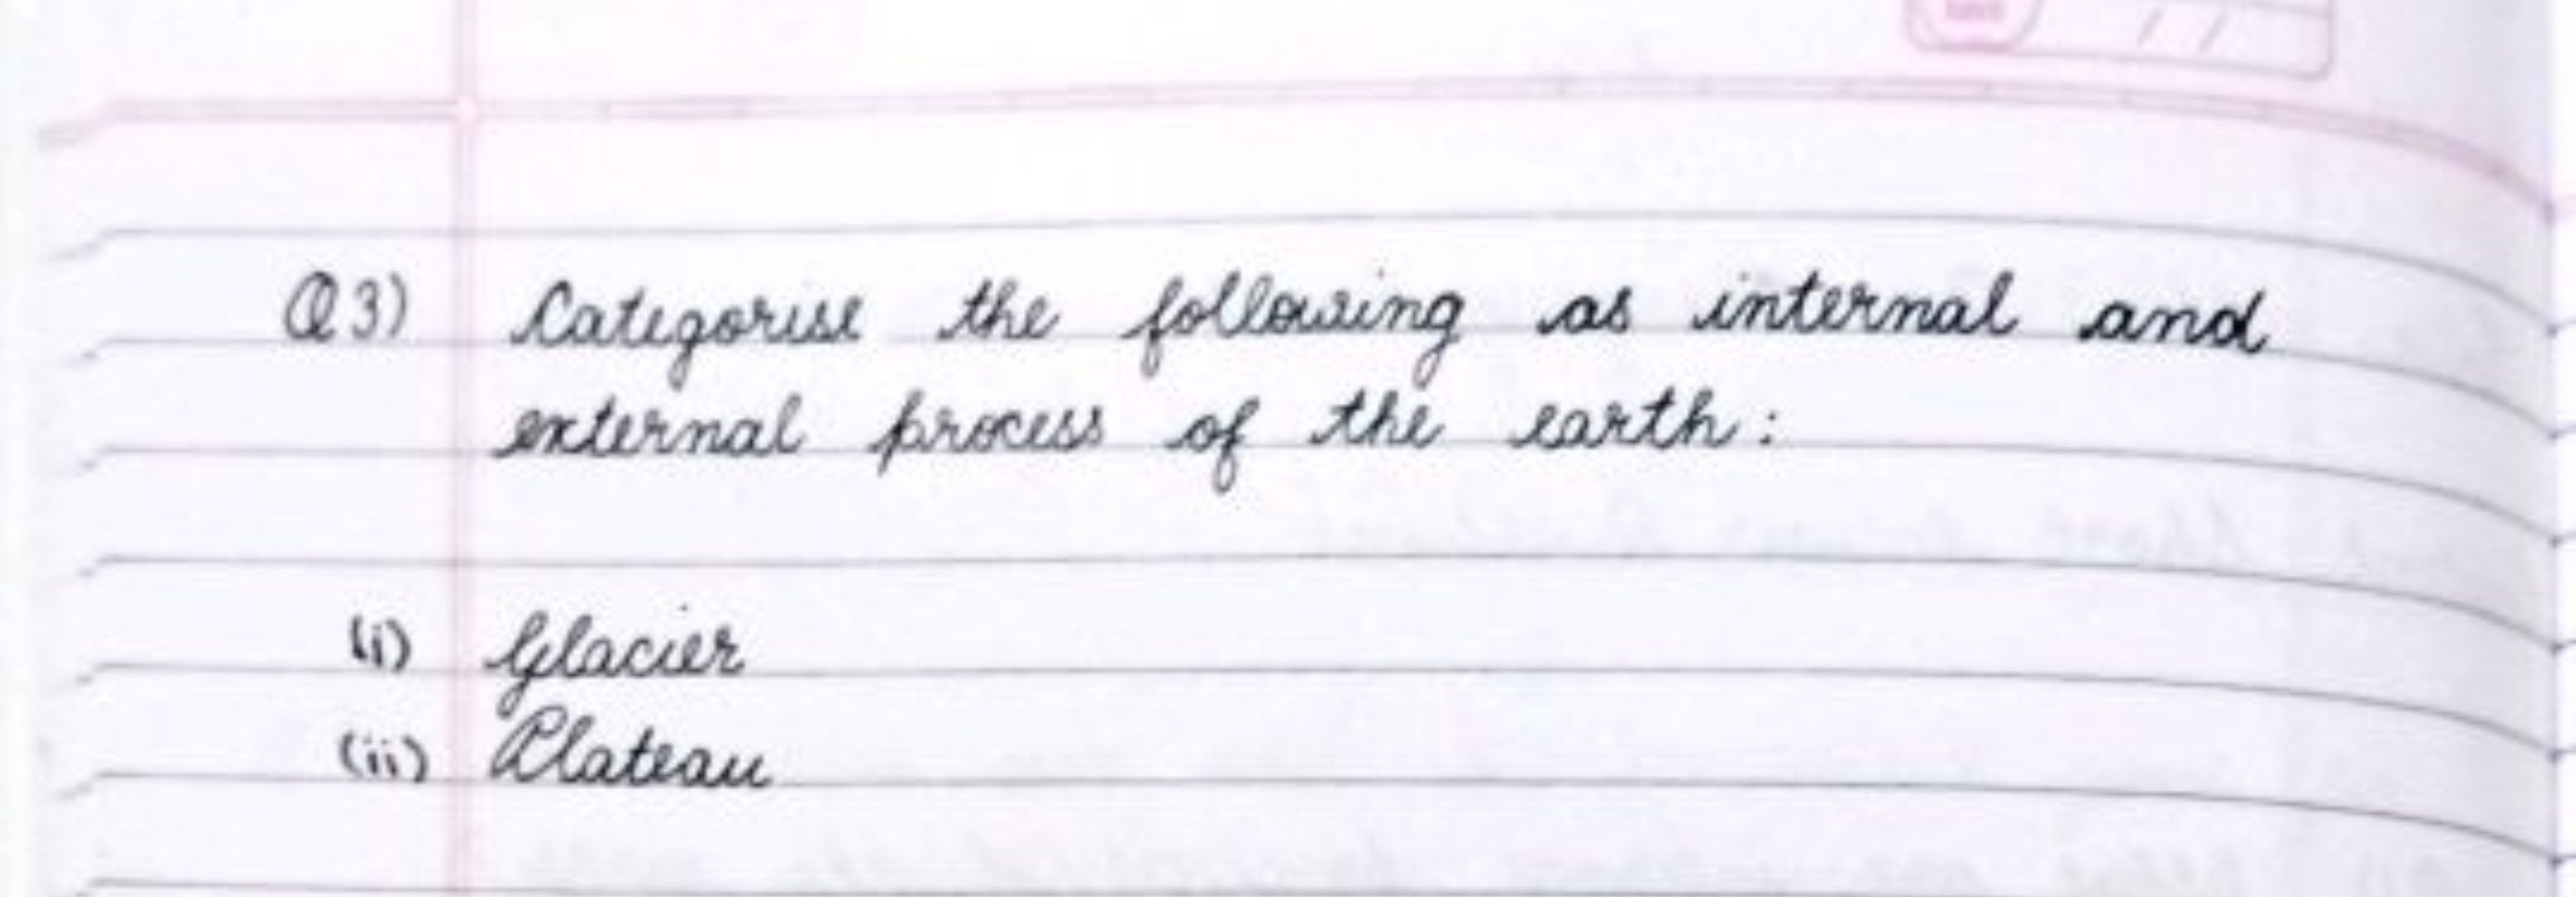 Q3) Categorise the following as internal and
external process of the earth:
(i) Glacier
(ii) Plateau